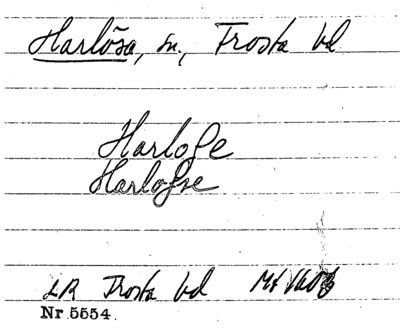 Harlösa, sn., Frosta hd
Harlose
Harlosse
LR Frosta hd Mt
Nr 5554.